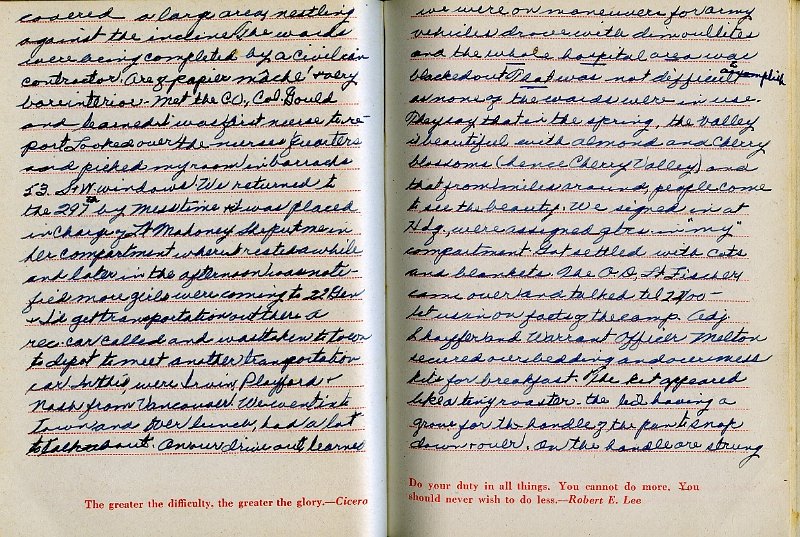 covered a large area, nestling
against the incline. The wards
were being completed by a civilian
contractor. Are of papier mache & very
bare interior. Met the CO, Col. Gould
and learned I was first nurse to re-
port. Looked over the nurses quarters
and picked my room in barracks
53. S & W windows. We returned to
the 297th by messtime & I was placed
in charge of Lt Mahoney. She put me in
her compartment where I rested awhile
and later in the afternoon was noti-
fied more girls were coming to 22 Gen
& I'd get transportation out there. A
rec. car called and was taken to town
to depot to meet another transportation
car. In this, were Irvin, Playford &
Nash from Vancouver. We went into
town and over lunch, had a lot
to talk about. On our drive out, learned
The greater the difficulty, the greater the glory.—Cicero
we were on maneuvers for army
vehicles drove with dim out lites
and the whole hospital area was
blacked out. That was not difficult to accomplish
as none of the wards were in use.
They say that in the spring, the valley
is beautiful with almond and cherry
blossoms (hence Cherry Valley) and
that from miles around, people come
to see the beauty. We signed in at
Hdq. were assigned qtrs. in "my"
compartment. Got settled with cots
and blankets. The O.D., Lt. Fischer
came over and talked til 2400
let us in on facts of the camp. Adj.
Shaffer and Warrant Officer Melton
secured our bedding and our mess
kits for breakfast. The kit appeared
like a tiny roaster - the lid having a
grove for the handle of the pan to snap
down & over. On the handle are strung
Do your duty in all things. You cannot do more. You
should never wish to do less.—Robert E. Lee